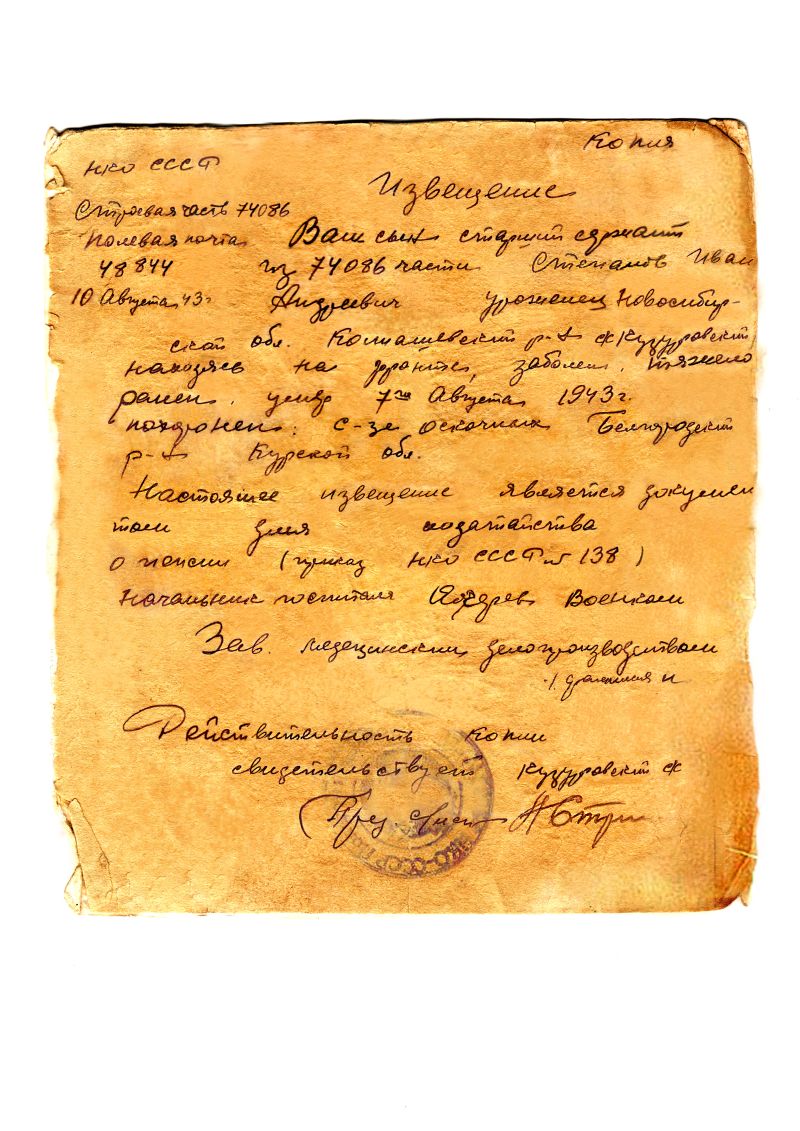 Копия
НКО СССР
Извещение
Строевая часть 74086
Полевая почта Ваш сын старший сержант
48844 из 74086 части Степанов Иван
10 Августа 43 г Андреевич уроженец Новосибир-
ской обл. Колпашевский р-н с/с Кузуровский
находясь на фронте, заболел, тяжело
ранен, умер 7го Августа 1943 г.
похоронен: с-зе Белгородский
р-н Курской обл.
Настоящее извещение является докумен
том для ходатайства
о пенсии (приказ НКО СССР № 138)
Начальник госпиталя Военком
Зав. медецинским делопроизводством
Действительность копии
свидетельствует Кузуровский с/с
Пред.